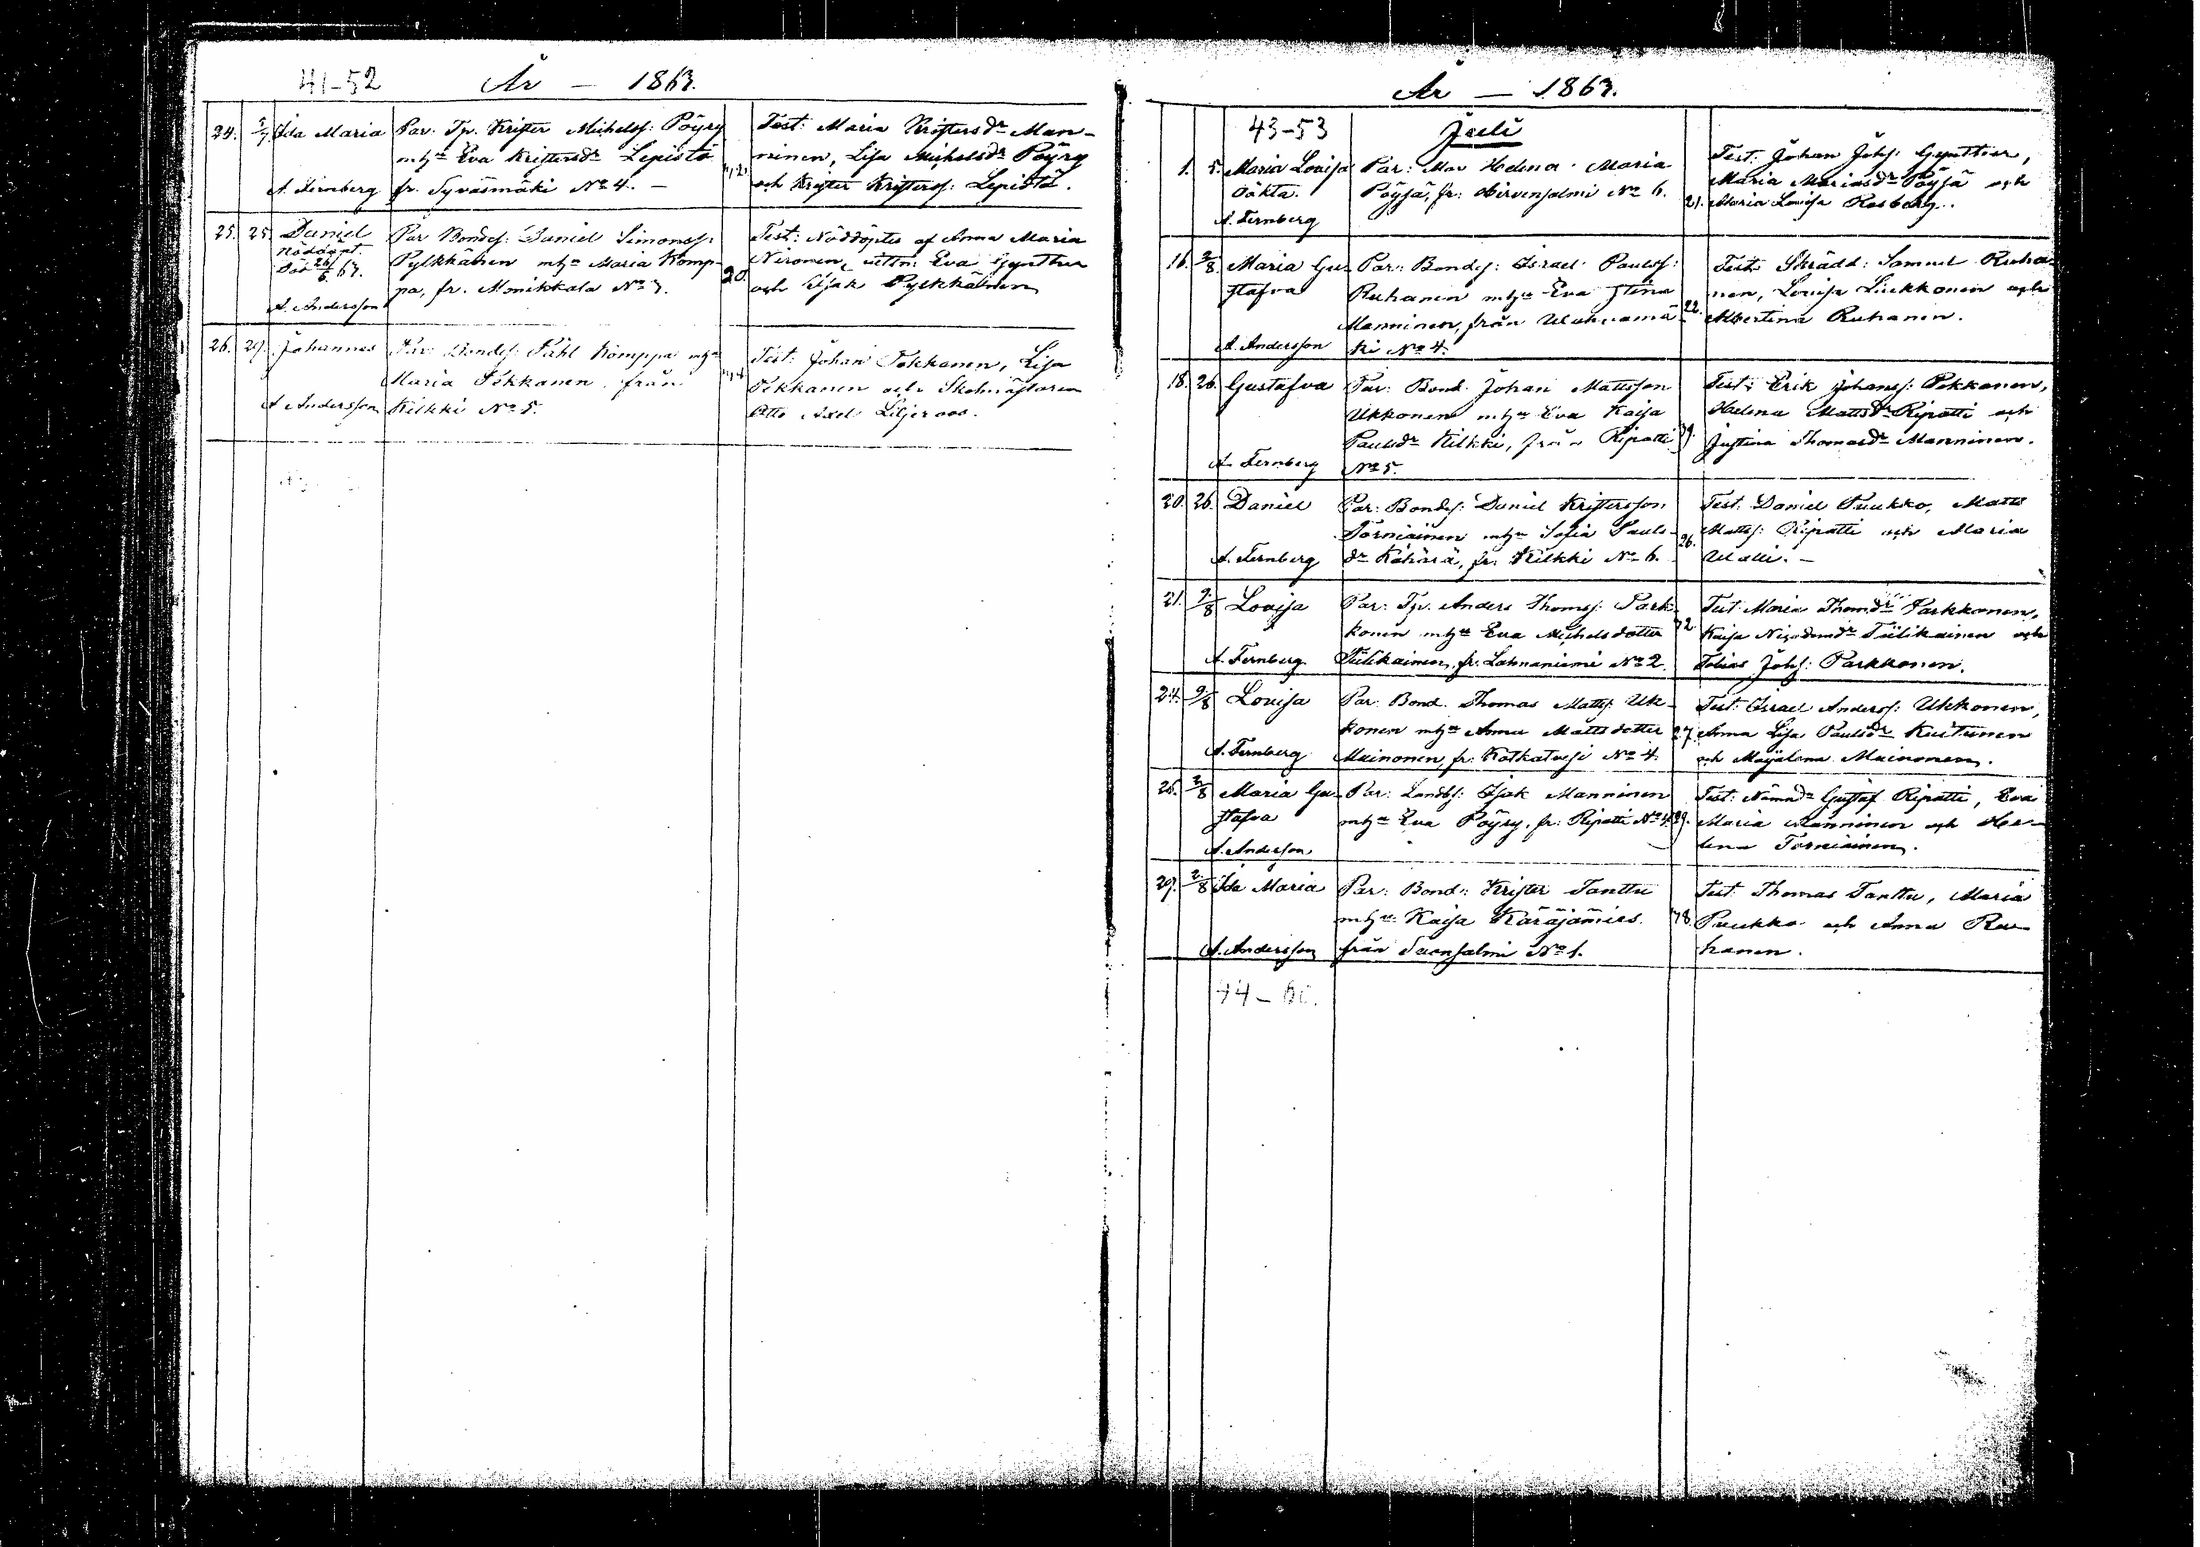 41-52 År — 1863.
24. 5/7 Ida Maria
A. Fernberg
Par. Tp. Krister Michelss: Pöyry
mh:u Eva Kristersdr Lepistö
fr. Syväsmäki No 4. —
Test: Maria Kristersdr Man-
ninen, Lisa Michelsdr Pöyry
och Krister Kristerss: Lepistö.
25. 25. Daniel
Nöddöpt.
Död 26/6 63.
A. Andersson
Par Bondes: Daniel Simonss:
Pylkkänen mh:u Maria Komp-
pa, fr. Monikkala No 7.
20.
Test: Nöddöptes af Anna Maria
Neronen, vittn: Eva Gynther
och Isak Pylkkänen
26. 29. Johannes
A. Andersson
Par: Bondes: Påhl Komppa mh:u
Maria Pekkanen från
Kilkki No 5.
Test: Johan Pekkanen, Lisa
Pekkanen och Skolmästaren
Otto Axel Liljeroos.
År — 1863.
43-53 Juli
1. 5. Maria Lovisa
Oäkta.
A. Fernberg
Par: Mor Helena Maria
Pöysä, fr. Hirvensalmi No 6.
21.
Test: Johan Johs: Gynther,
Maria Mariasdr Pöysä och
Maria Lovisa Rosberg.
16. 2/8 Maria Gu-
stafva
A. Andersson
Par: Bondes: Israel Paulss:
Ruhanen mh:u Eva Stina
Manninen, från Wahvamä-
ki No 4.
22.
Test: Skrädd: Samuel Ruha-
nen, Lovisa Liukkonen och
Albertina Ruhanen.
18. 26. Gustafva
A. Fernberg
Par: Bond. Johan Mattsson
Ukkonen mh:u Eva Kaija
Paulsdr Kilkki, från Ripatti
No 5.
Test: Erik Johanss: Pekkanen,
Helena Mattsdr Ripatti och
Justina Thomasdr Manninen.
20. 26. Daniel
A. Fernberg
Par: Bondes: Daniel Kristersson
Torniainen mh:u Sofia Pauls-
dr Kähärä, fr. Kilkki No 6.
26.
Test: Daniel Puukko, Matts
Mattss: Ripatti och Maria
Walli. —
21. 9/8 Lovisa
A. Fernberg
Par: Tp. Anders Thomss: Park-
konen mh:u Eva Michelsdotter
Tiilikainen, fr. Lahnaniemi No 2.
Test: Maria Thomdr Parkkonen,
Kaija Nigodemdr Tiilikainen och
Tobias Johs: Parkkonen.
24. 9/8 Lovisa
A. Fernberg
Par: Bond. Thomas Matts: Uk-
konen mh:u Anna Mattsdotter
Mainonen, fr. Kotkatvesi No 4.
27.
Test: Israel Anderss: Ukkonen,
Anna Lisa Paulsdr Kuitunen
och Majalena Mainonen.
25. 2/8 Maria Gu-
stafva
A. Andersson
Par: Landbs: Isak Manninen
mh:u Eva Pöyry, fr: Ripatti No 4.
Test: Nämnd: Gustaf Ripatti, Eva
Maria Manninen och He-
lena Torniainen.
29. 2/8 Ida Maria
A. Andersson
Par: Bond: Krister Tanttu
mh:u Kaija Käräjämies
från Suonsalmi No 1.
Test: Thomas Tanttu, Maria
Puukko och Anna Ru-
hanen.
44-60.